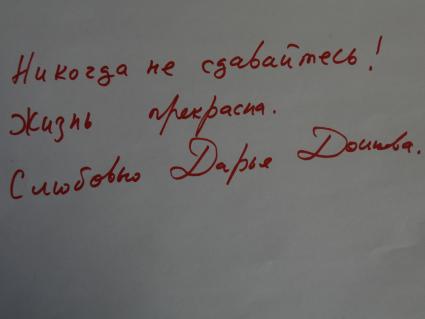 Никогда не сдавайтесь!
Жизнь прекрасна.
С любовью Дарья Донцова.